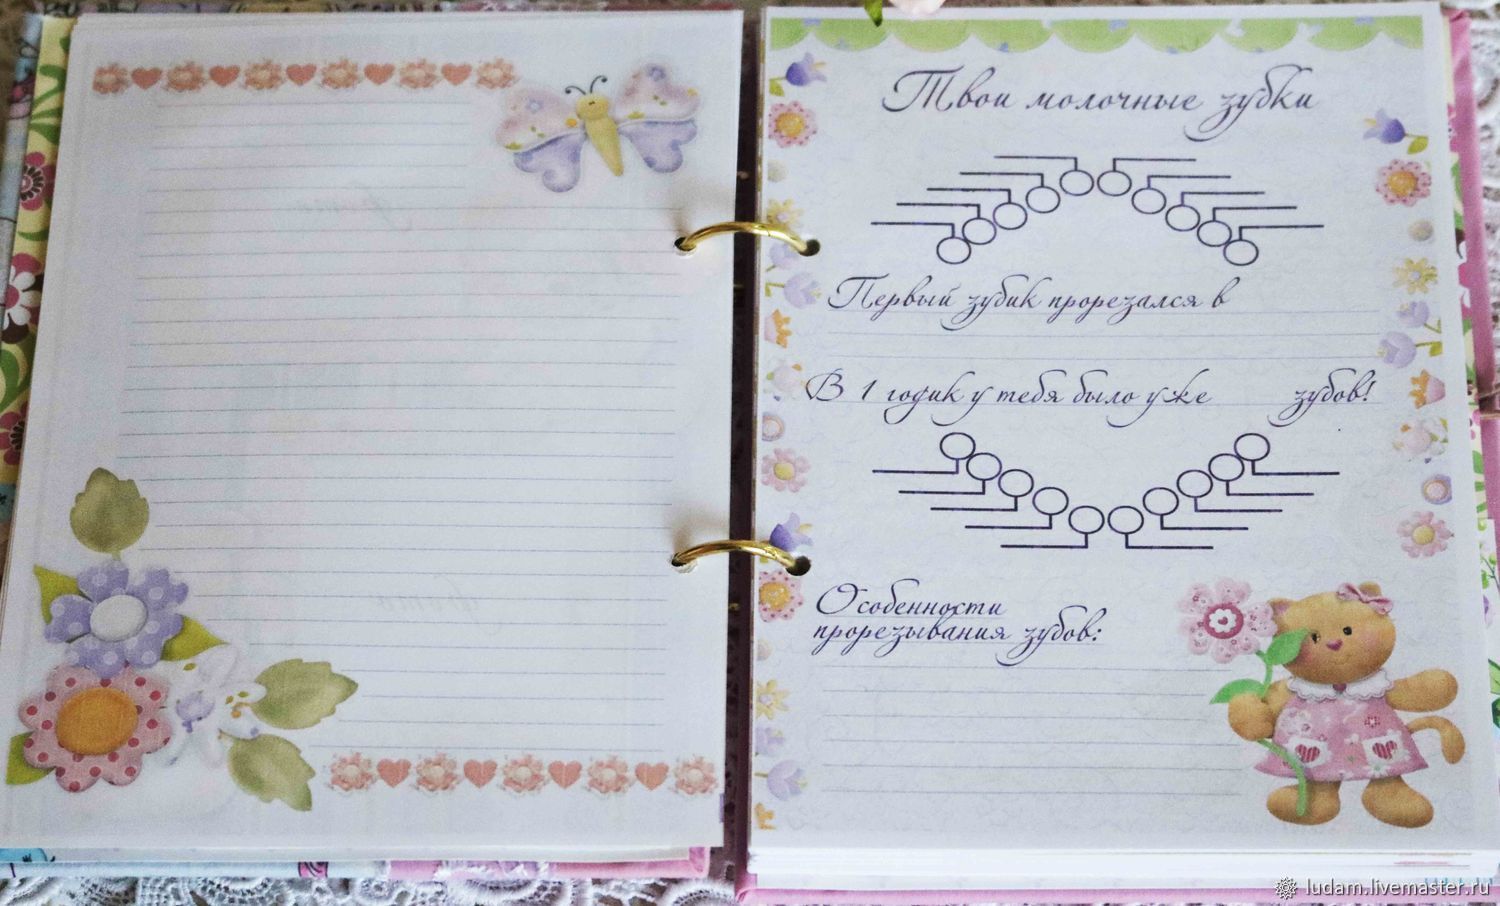 Твои молочные зубки
Первый зубик прорезался в
В 1 годик у тебя было уже зубов!
Особенности
прорезывания зубов:
ludam.livemaster.ru